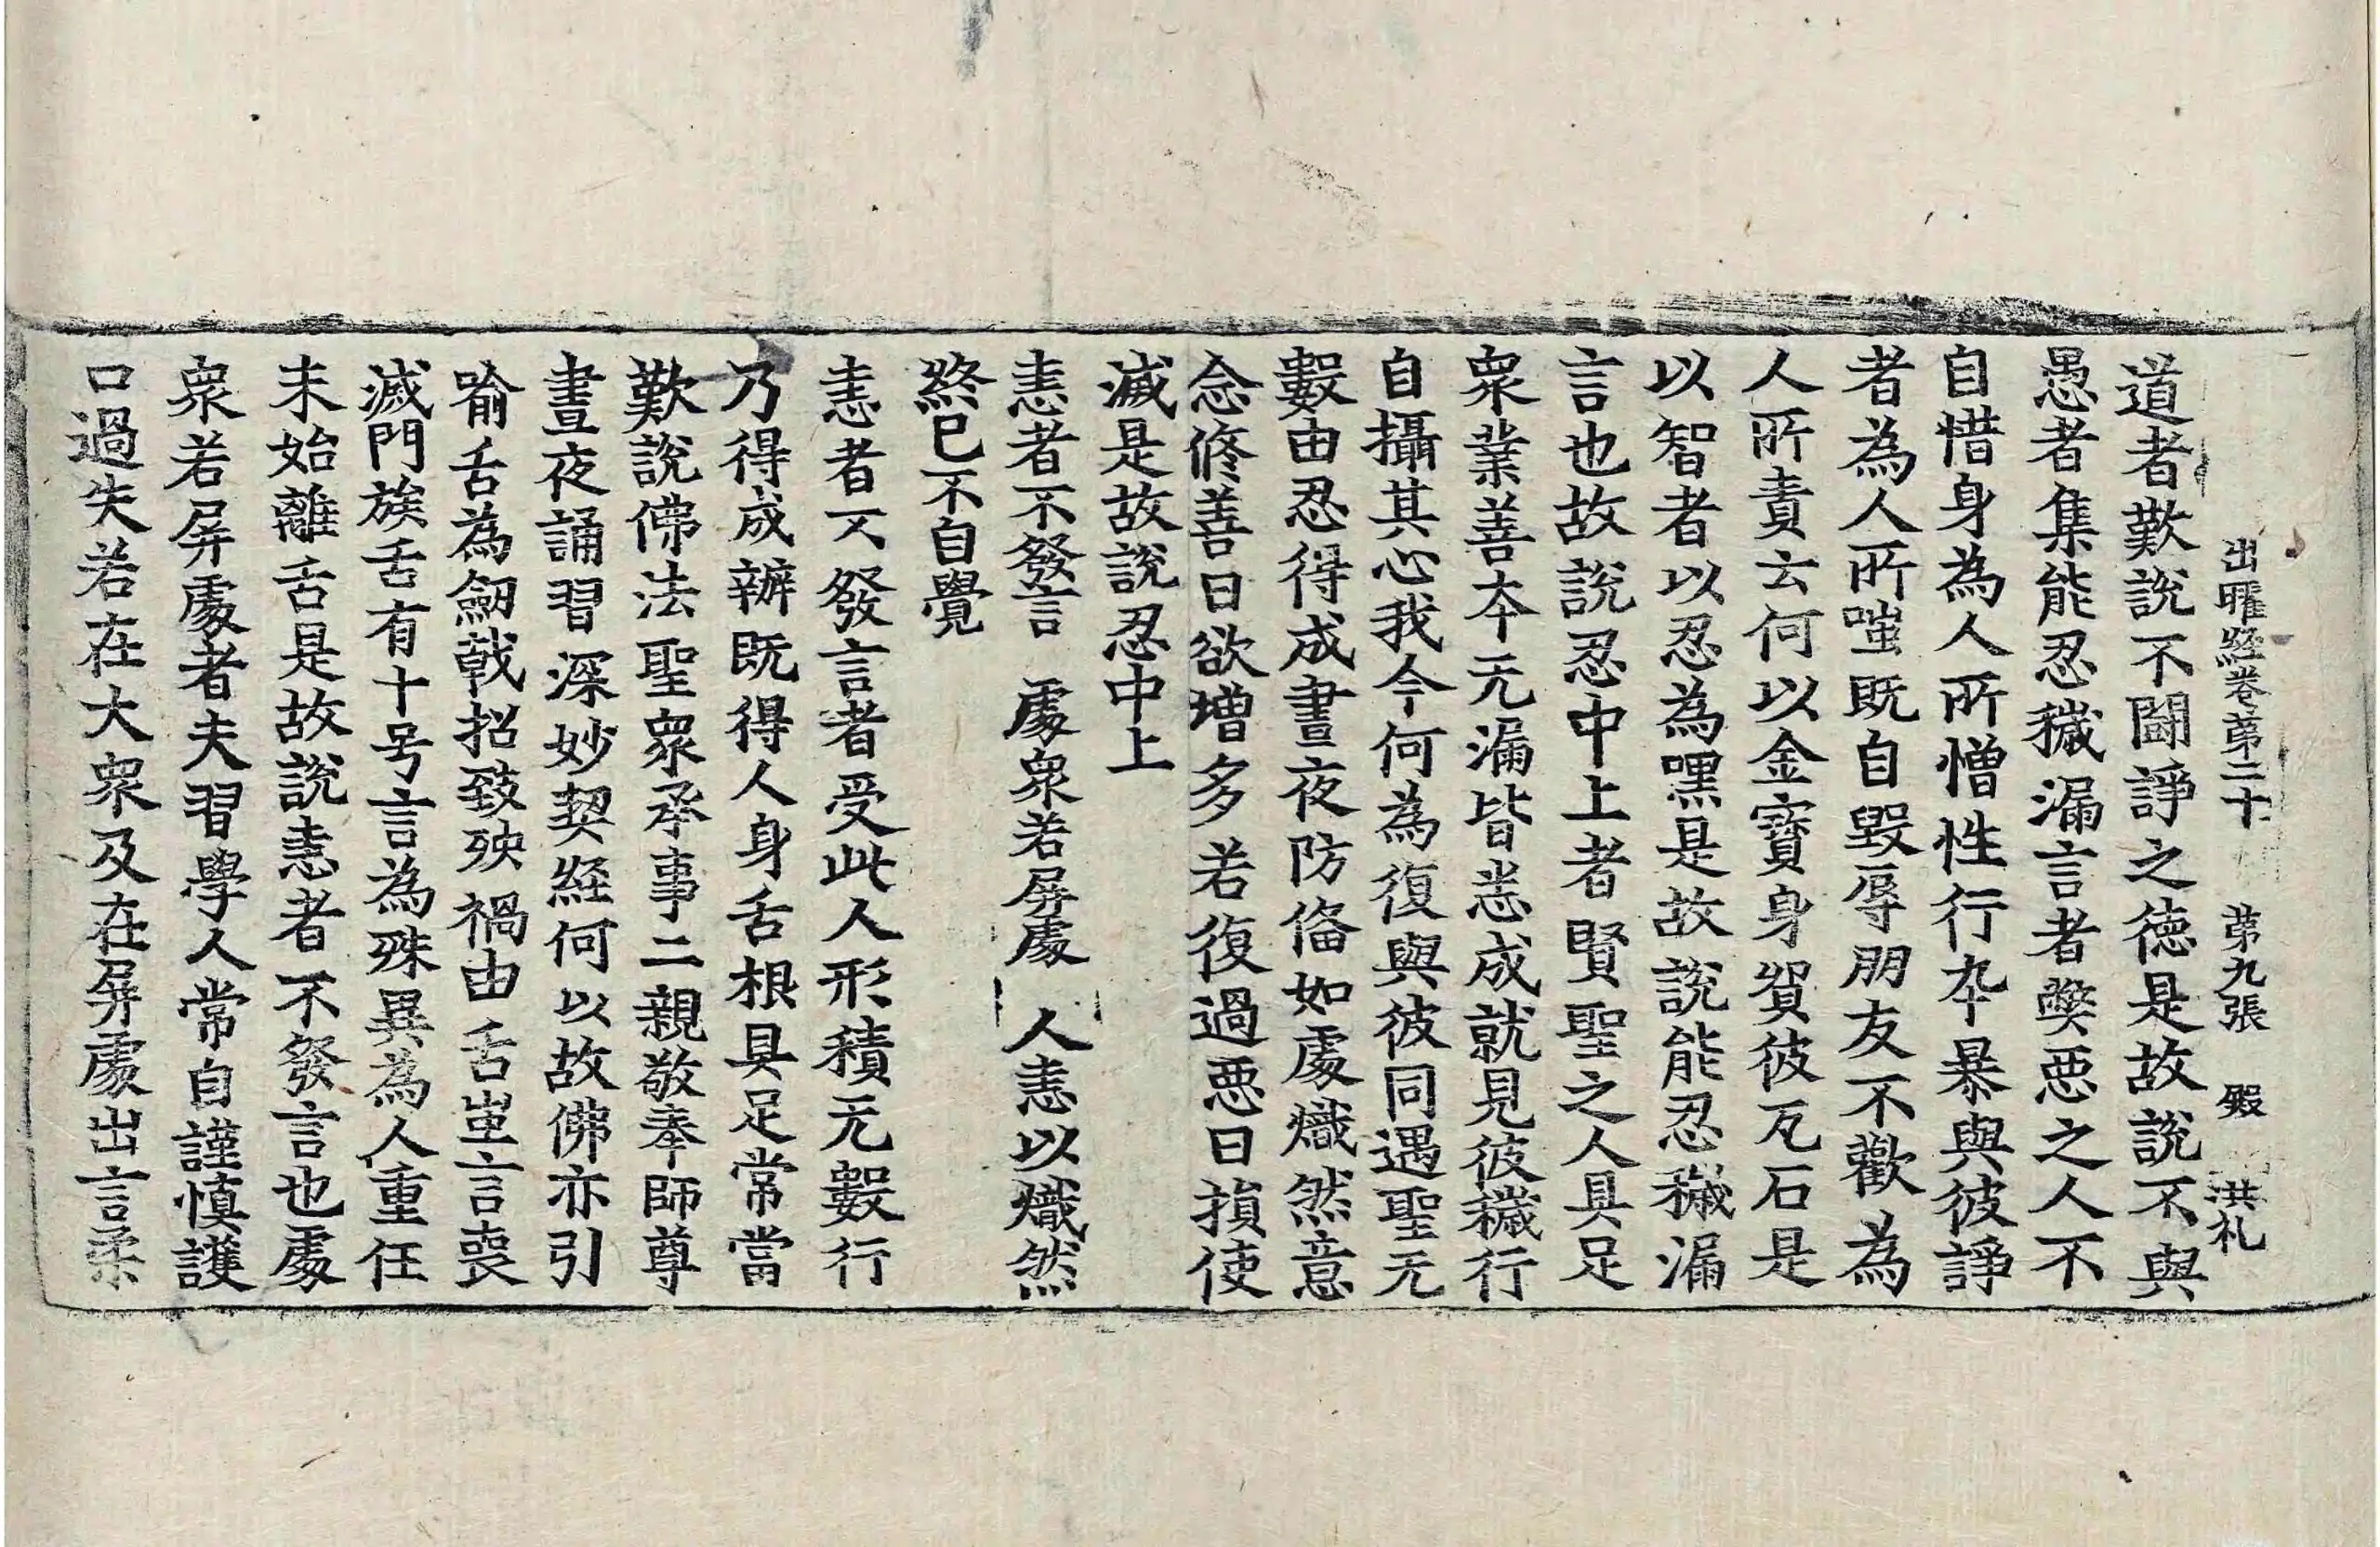 出曜經卷第二十 第九張 殿 洪礼
道者歎說不鬪諍之德是故說不與
愚者集能忍穢漏言者弊惡之人不
自惜身為人所憎性行卒暴與彼諍
者為人所嗤既自毀辱朋友不歡為
人所責云何以金寶身貿彼瓦石是
以智者以忍為嘿是故說能忍穢漏
言也故說忍中上者賢聖之人具足
眾業善本无漏皆悉成就見彼穢行
自攝其心我今何為復與彼同遇聖无
數由忍得成晝夜防俻如處熾然意
念修善日欲增多若復過惡日損使
滅是故說忍中上
恚者不發言 處眾若屏處 人恚以熾然
終已不自覺
恚者不發言者受此人形積无數行
乃得成辦既得人身舌根具足常當
歎說佛法聖眾承事二親敬奉師尊
晝夜誦習深妙契經何以故佛亦引
喻舌為劒戟招致殃禍由舌出言喪
滅門族舌有十号言為殊異為人重任
未始離舌是故說恚者不發言也處
眾若屏處者夫習學人常自謹慎護
口過失若在大眾及在屏處出言柔